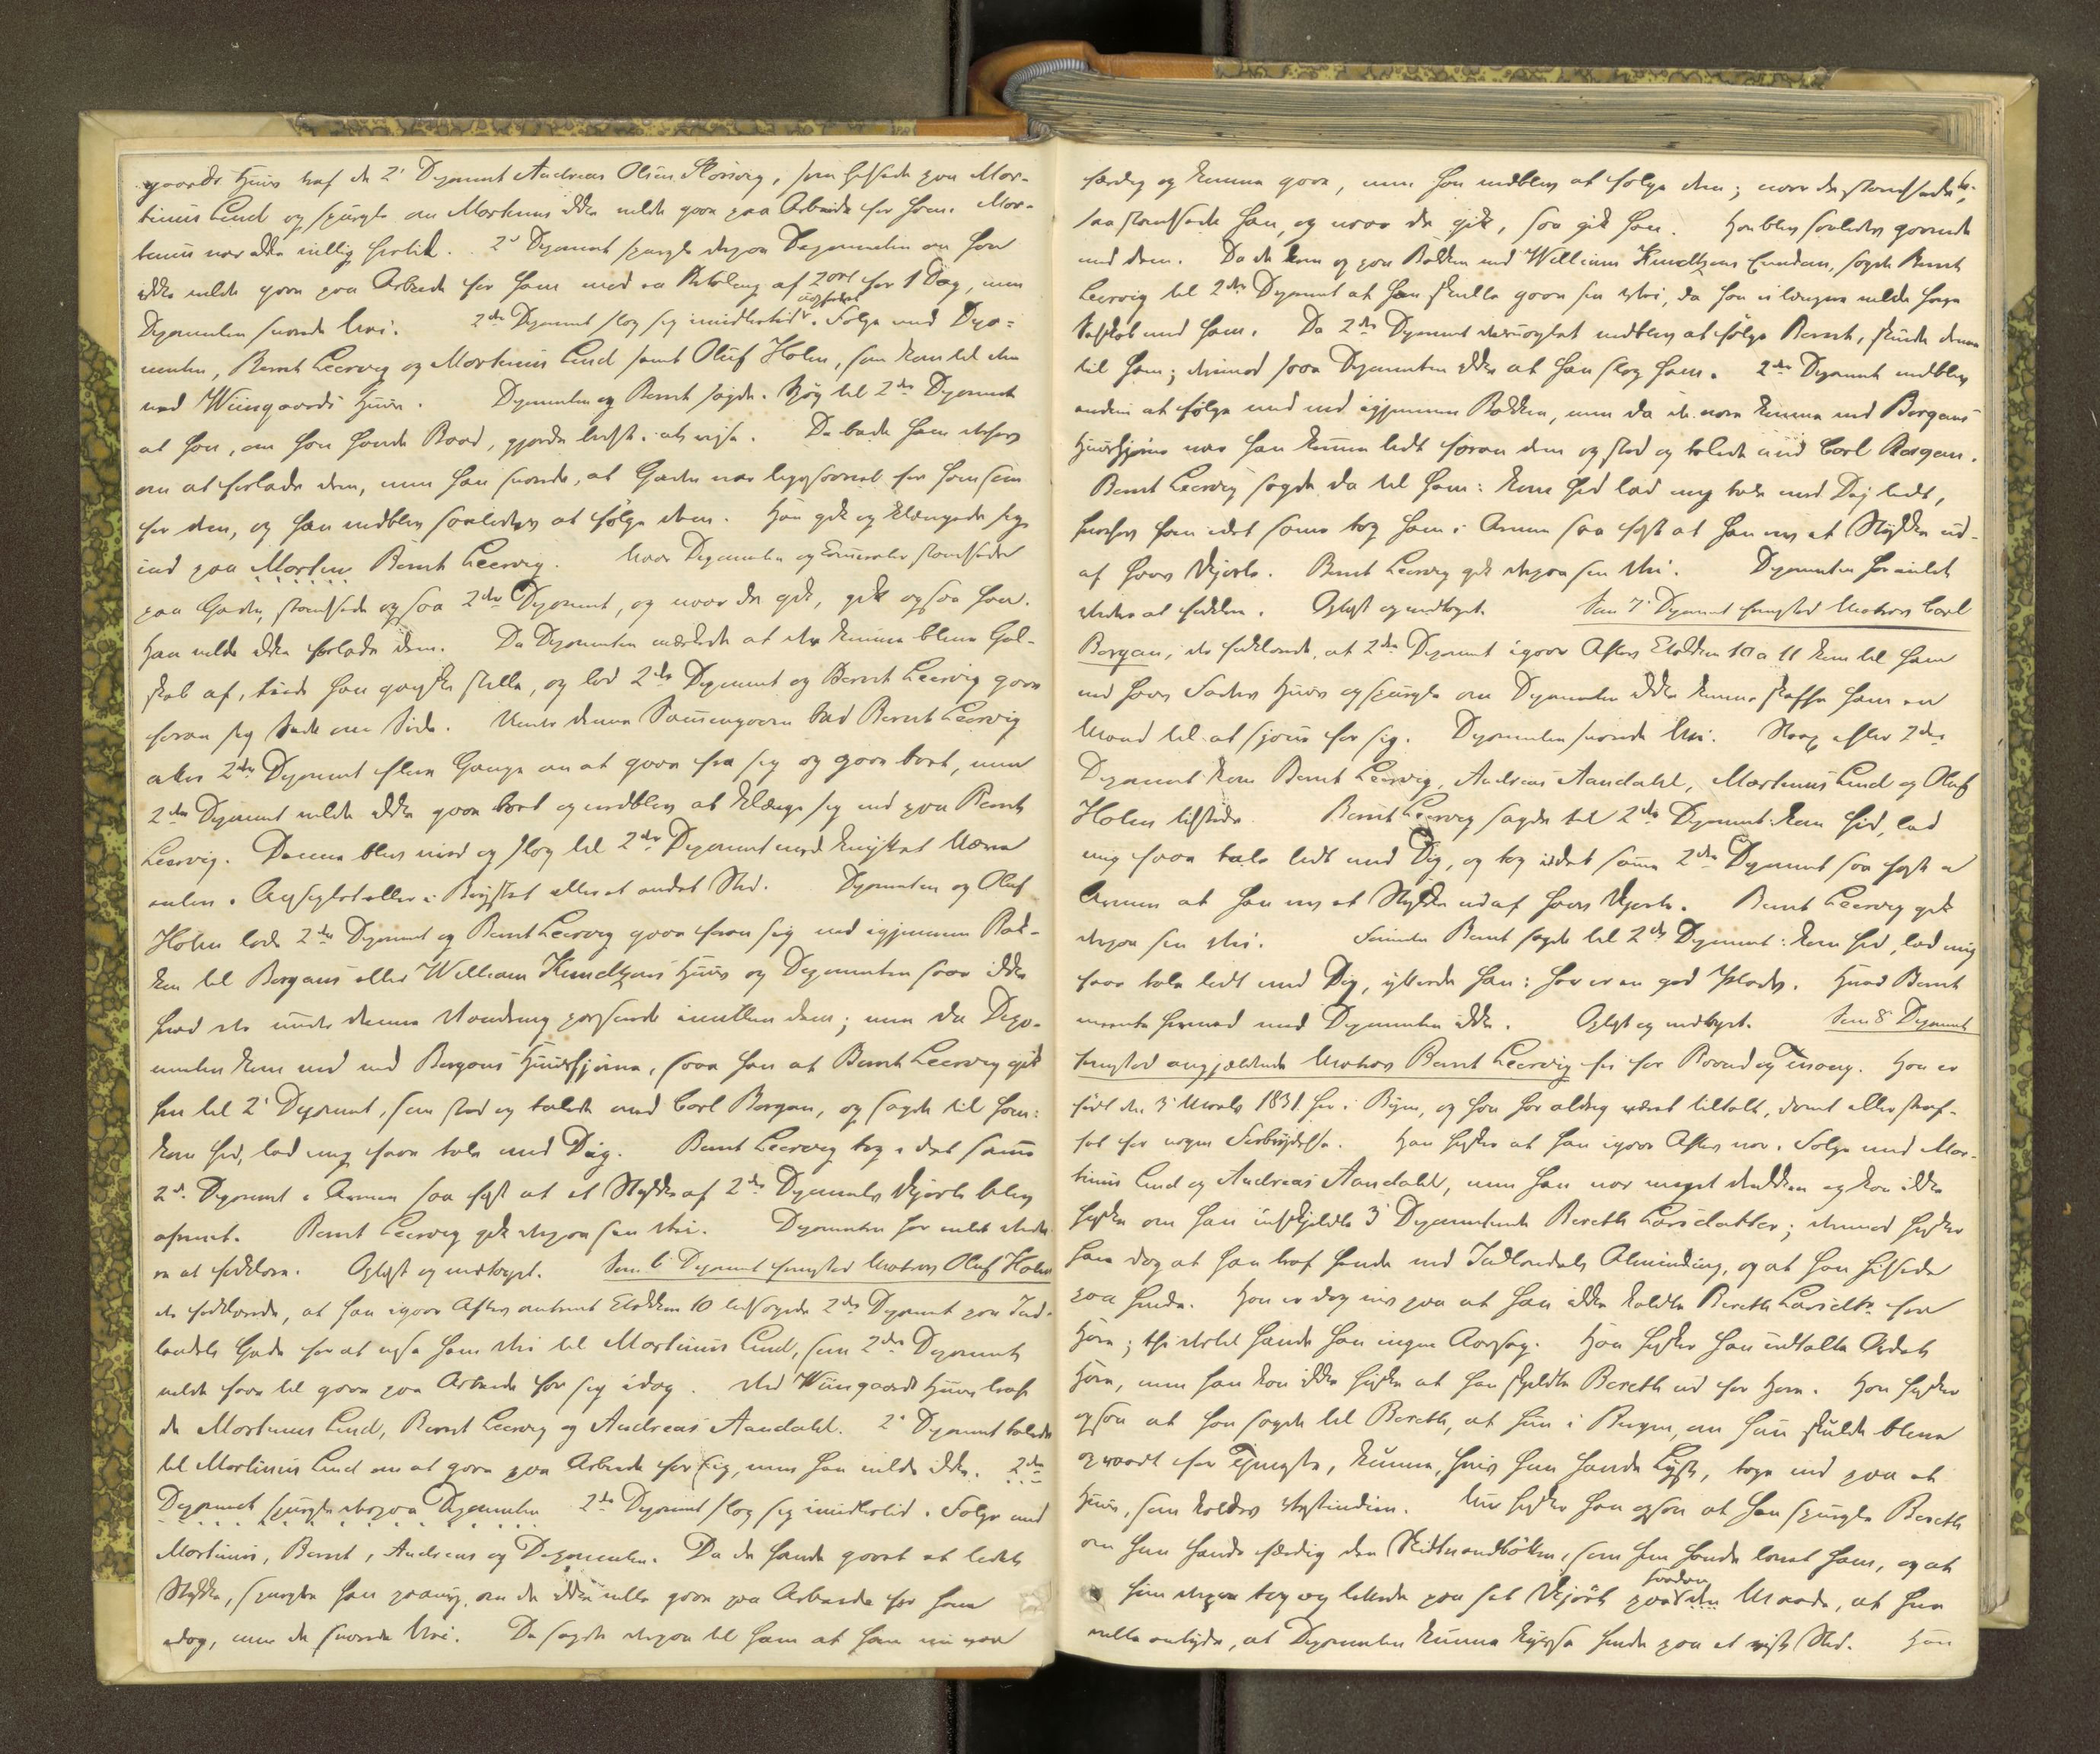 gaards Huus traf de 2' Deponent Andreas Olsen Skorsvig, som hilsede paa Mor-
tinus Lind og spurgte om Martinus ikke vilde gaae paa Arbeide for ham. Mor-
tinus var ikke villig hertil. 2' Deponent spurgte derpaa Deponenten om han
ikke vilde gaae paa Arbeide for ham mod en Betaling af 2 ort for 1 Dag, men
Deponenten svarede Nei. 2den Deponent slog sig imidlertid uopfordret i Følge med Depo-
nenten, Bernt Leervig og Mortinus Lind samt Oluf Holen, som kom til dem
ved Wiingaards Huus. Deponenten og Bernt sagde til 2den Deponent
at han, om han havde Raad, gjorde bedst i at reise. De bade ham derhos
om at forlade dem, men han svarede, at Gaden var ligesaavel for ham som
for dem, og han vedblev saaledes at følge dem. Han gik og klængede sig
ind paa Morten Bernt Leervig. Naar Deponenten og Kamerater standsede
paa Gaden, standsede ogsaa 2den Deponent, og naar de gik, gik ogsaa han.
Han vilde ikke forlade dem. Da Deponenten mærkede at der kunne blive Gal-
skab af, taug han ganske stille, og lod 2den Deponent og Bernt Leervig gaae
foran sig Side om Side. Under denne Sammengaaen bad Bernt Leervig
atter 2den Deponent flere Gange om at gaae fra sig og gaae bort, men
2den Deponent vilde ikke gaae bort og vedblev at klænge sig ind paa Bernt
Leervig. Denne blev vred og slog til 2den Deponent med knyttet Næve
enten i Ansigtet eller i Brystet eller et andet Sted. Deponenten og Oluf
Holen lode 2den Deponent og Bernt Leervig gaae foran sig ned igjennem Bak-
ken til Bergans eller William Knudtzons Huus og Deponenten saae ikke
hvad der under denne Vandring passerede imellem dem; men da Depo-
nenten kom ned ved Bergans Huushjørne, saae han at Bernt Leervig gik
hen til 2' Deponent, som stod og talede med Carl Bergan, og sagde til ham:
kom hid, lad mig faae tale med Dig. Bernt Leervig tog i det samme
2d Deponent i Armen saa fast at et Stykke af 2den Deponents Skjorte blev
afrevet. Bernt Leervig gik derpaa sin Vei. Deponenten har intet videre
at forklare. Oplæst og vedtaget. Som 6' Deponent fremstod Matros Oluf Holen
der forklarede, at han igaar Aftes omtrent Klokken 10 ledsagede 2den Deponent paa Ind-
landets Gade for at vise ham Vei til Mortinus Lind, som 2den Deponent
vilde faae til gaae paa Arbeide for sig idag. Ved Wiingaards Huus traf
de Mortinus Lind, Bernt Leervig og Andreas Aandahl. 2' Deponent talede
til Martinus Lind om at gaae paa Arbeide for sig, men han vilde ikke. 2den
Deponent spurgte derpaa Deponenten 2den Deponent slog sig imidlertid i Følge med
Mortinus, Bernt, Andreas og Deponenten. Da de havde gaaet et lidet
Stykke, spurgte han paany, om de ikke ville gaae paa Arbeide for ham
idag, men de svarede Nei. De sagde derpaa til ham at han nu var
færdig og kunne gaae, men han vedblev at følge dem; naar de standsede,
saa standsede han, og naar de gik, saa gik han. Han blev saaledes gaaende
med dem. Da de kom op paa Bakken ved William Knudtzons Eiendom, sagde Bernt
Leervig til 2den Deponent at han skulle gaae sin Vei, da han ei længere vilde have
Selskab med ham. Da 2den Deponent desuagtet vedblev at følge Bernt, skuede denne
til ham; derimod saae Deponenten ikke at han slog ham. 2den Deponent vedblev
endnu at følge med ned igjennem Bakken, men da de vare komne ned Bergans
Huushjørne var han kommen lidt foran dem og stod og talede med Carl Bergan.
Bernt Leervig sagde da til ham: kom hid lad mig tale med Dig lidt,
hvorhos han idet samme tog ham i Armen saa fast at han rev et Stykke ud-
af hans Skjorte. Bernt Leervig gik derpaa sin Vei. Deponenten har intet
videre at forklare. Oplæst og vedtaget. Som 7' Deponent fremstod Matros Carl
Bergan, der forklarede, at 2den Deponent igaar Aftes Klokken 10 a 11 kom til ham
ved hans Faders Huus og spurgte om Deponenten ikke kunne skaffe ham en
Mand til at sjoue for sig. Deponenten svarede Nei. Strax efter 2den
Deponent kom Bernt Leervig, Andreas Aandahl, Mortinus Lind og Oluf
Holen tilstede. Bernt Leervig sagde til 2den Deponent: kom hid, lad
mig faae tale lidt med Dig, og tog i det samme 2den Deponent saa fast i
Armen at han rev et Stykke ud af hans Skjorte. Bernt Leervig gik
derpaa sin Vei. Forinden Bernt sagde til 2den Deponent: kom hid, lad mig
faae tale lidt med Dig, yttrede han: her er en god Plads. Hvad Bernt
meente hermed veed Deponenten ikke. Oplæst og vedtaget. Som 8' Deponent
fremstod angjældende Matros Bernt Leervig fri for Baand og Tvang. Han er
født den 3' Marts 1831 her i Byen, og han har aldrig været tiltalt, dømt eller straf-
fet for nogen Forbrydelse. Han husker at han igaar Aftes var i Følge med Mor-
tinus Lind og Andreas Aandahl, men han var meget drukken og kan ikke
huske om han udskjeldte 3' Deponentinde Bereth Larsdatter; derimod husker
han dog at han traf hende ved Indlandets Alminding, og at han hilsede
paa hende. Han er dog vis paa at han ikke kaldte Bereth Larsdtr. for
Hore; thi dertil havde han ingen Aarsag. Han husker han udtalte Ordet
Hore, men han kan ikke huske at han skjeldte Bereth ud for Hore. Han husker
ogsaa at han sagde til Bereth, at hun i Bergen, om hun skulde blive
opraadt for Penge, kunne, hvis hun havde Lyst, tage ind paa et
Huus, som kaldes Vestindien. Nu husker han ogsaa at han spurgte Bereth
om hun havde færdig den som hun havde lovet ham, og at
hun derpaa tog og lettede paa sit Skjørt paa saadan den Maade, at hun
ville antyde, at Deponenten kunne kysse hende paa et vist Sted. Han